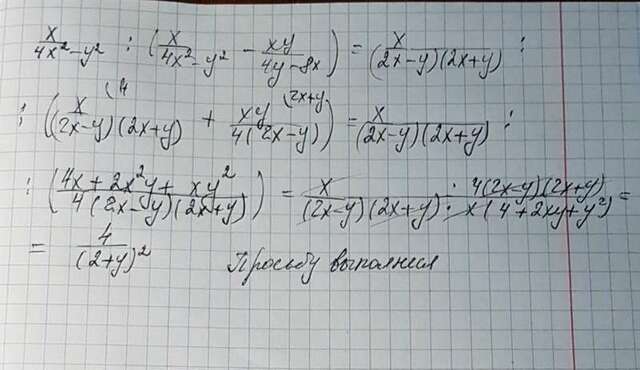 x/(4x²-y²) : (x/(4x²-y²) - xy/(4y-8x)) = x/((2x-y)(2x+y)) :
: (x/((2x-y)(2x+y)) (4 + xy/(4(2x-y)) (2x+y) = x/((2x-y)(2x+y)) :
: ((4x+2x²y+xy²)/(4(2x-y)(2x+y))) = x/((2x-y)(2x+y)) : 4(2x-y)(2x+y)/(x(4+2xy+y²)) =
= 4/(2+y)² Просьбу выполнил